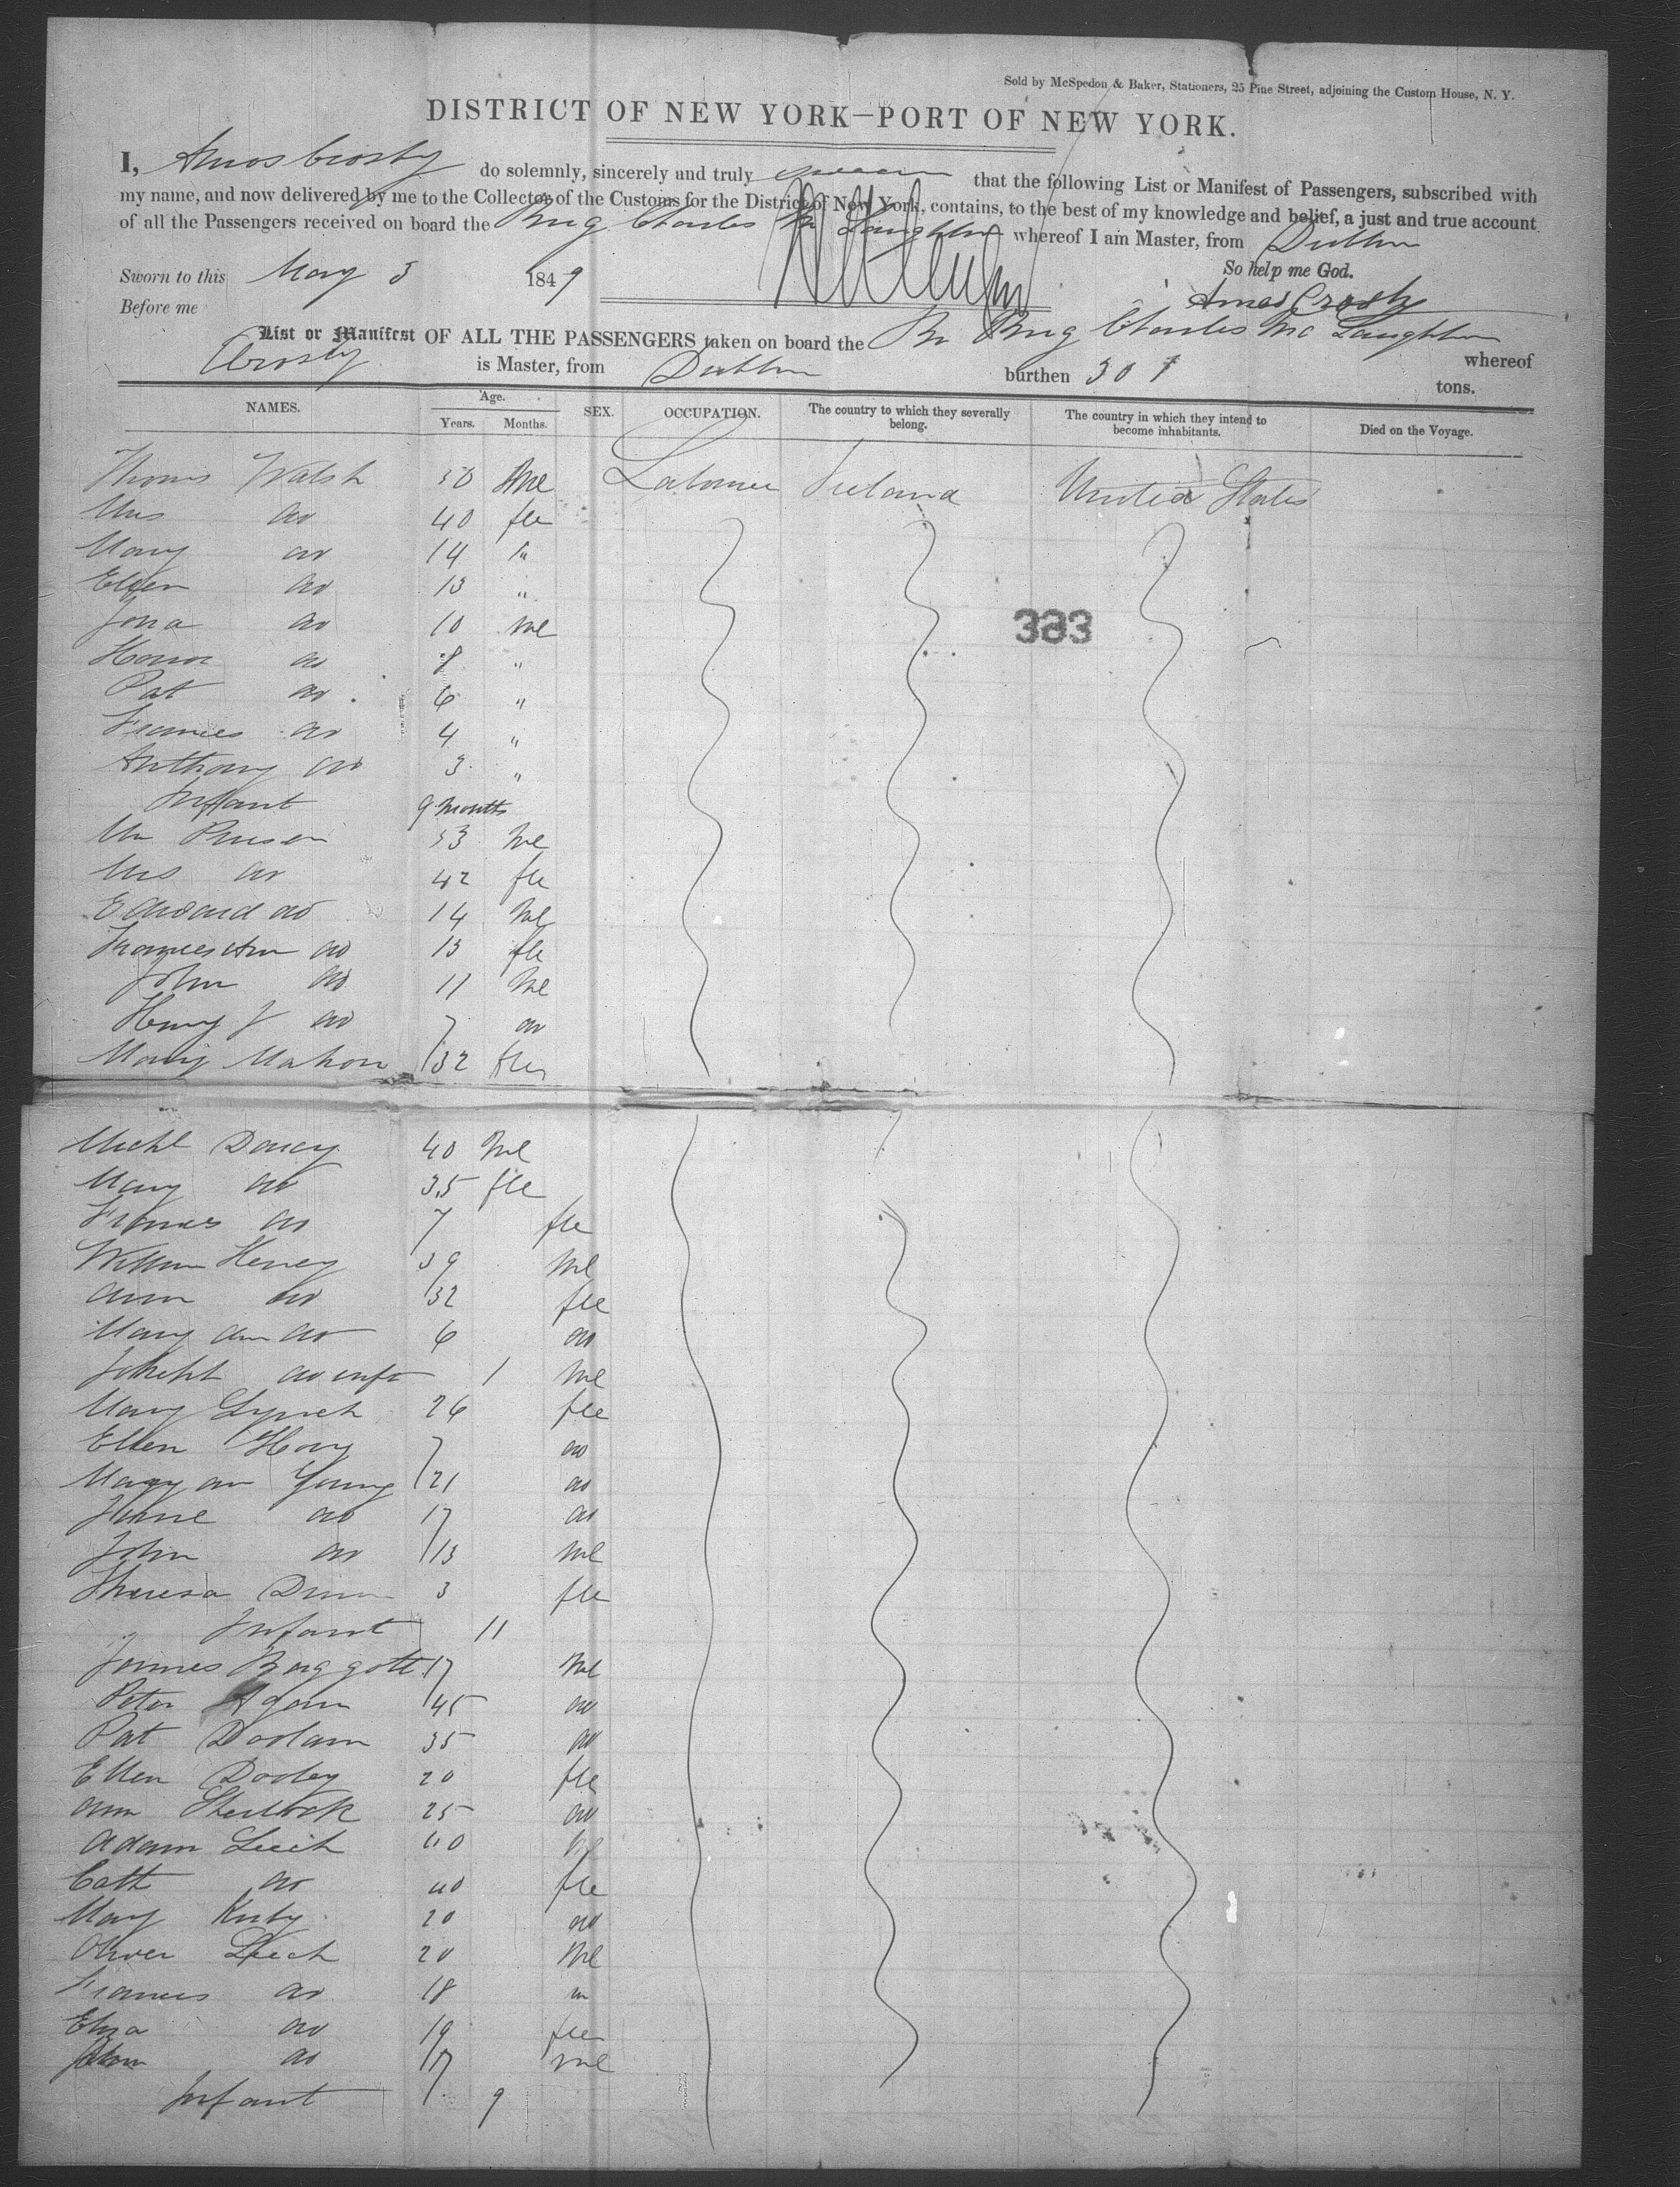 Sold by McSpedon & Baker, Stationers, 25 Pine Street, adjoining the Custom House, N. Y.
DISTRICT OF NEW YORK—PORT OF NEW YORK.
I, Amos Crosby do solemnly, sincerely and truly swear that the following List or Manifest of Passengers, subscribed with
my name, and now delivered by me to the Collector of the Customs for the District of New York, contains, to the best of my knowledge and belief, a just and true account
of all the Passengers received on board the Brig Charles Mc Laughlin whereof I am Master, from Dublin
So help me God.
Sworn to this May 3 1849
Amos Crosby
Before me
List or Manifest OF ALL THE PASSENGERS taken on board the Br Brig Charles Mc Laughlin whereof
Crosby is Master, from Dublin burthen 301 tons.
NAMES. Age. Years. Months. SEX. OCCUPATION. The country to which they severally belong. The country in which they intend to become inhabitants. Died on the Voyage.
Thomas Walsh 50 Mle Labourer Ireland United States
Mrs do 40 fle
Mary do 14
Ellen do 13 "
do 10 Mle
do 8 "
Pat do 6 "
Frances do 4 "
Anthony do 3 "
Infant 9 Months
Mr 53 Mle
Mrs do 42 fle
Edward do 14 Mle
Frances Ann do 13 fle
John do 11 Mle
Henry J do 7 do
Mary Mahon 32 fle
383
Michl Darcy 40 Mle
Mary do 35 fle
Frances do 7 fle
William Heney 39 Mle
Ann do 32 fle
Mary Ann do 6 do
Joseph do inft 1 Mle
Mary Lynch 26 fle
Ellen 7 do
Mary an Young 21 do
Jane do 17 do
John do 13 Mle
Theresa Dunn 3 fle
Infant 11
James Baggott 17 Mle
Peter 45 do
Pat Doolan 35 do
Ellen Dooley 20 fle
Ann Sherlock 25 do
Adam Leech 40 Ml
Cath do 40 fle
Mary Kirby 20 do
Oliver Leech 20 Mle
Frances do 18
Eliza do 19 fle
do 17 Mle
Infant 9